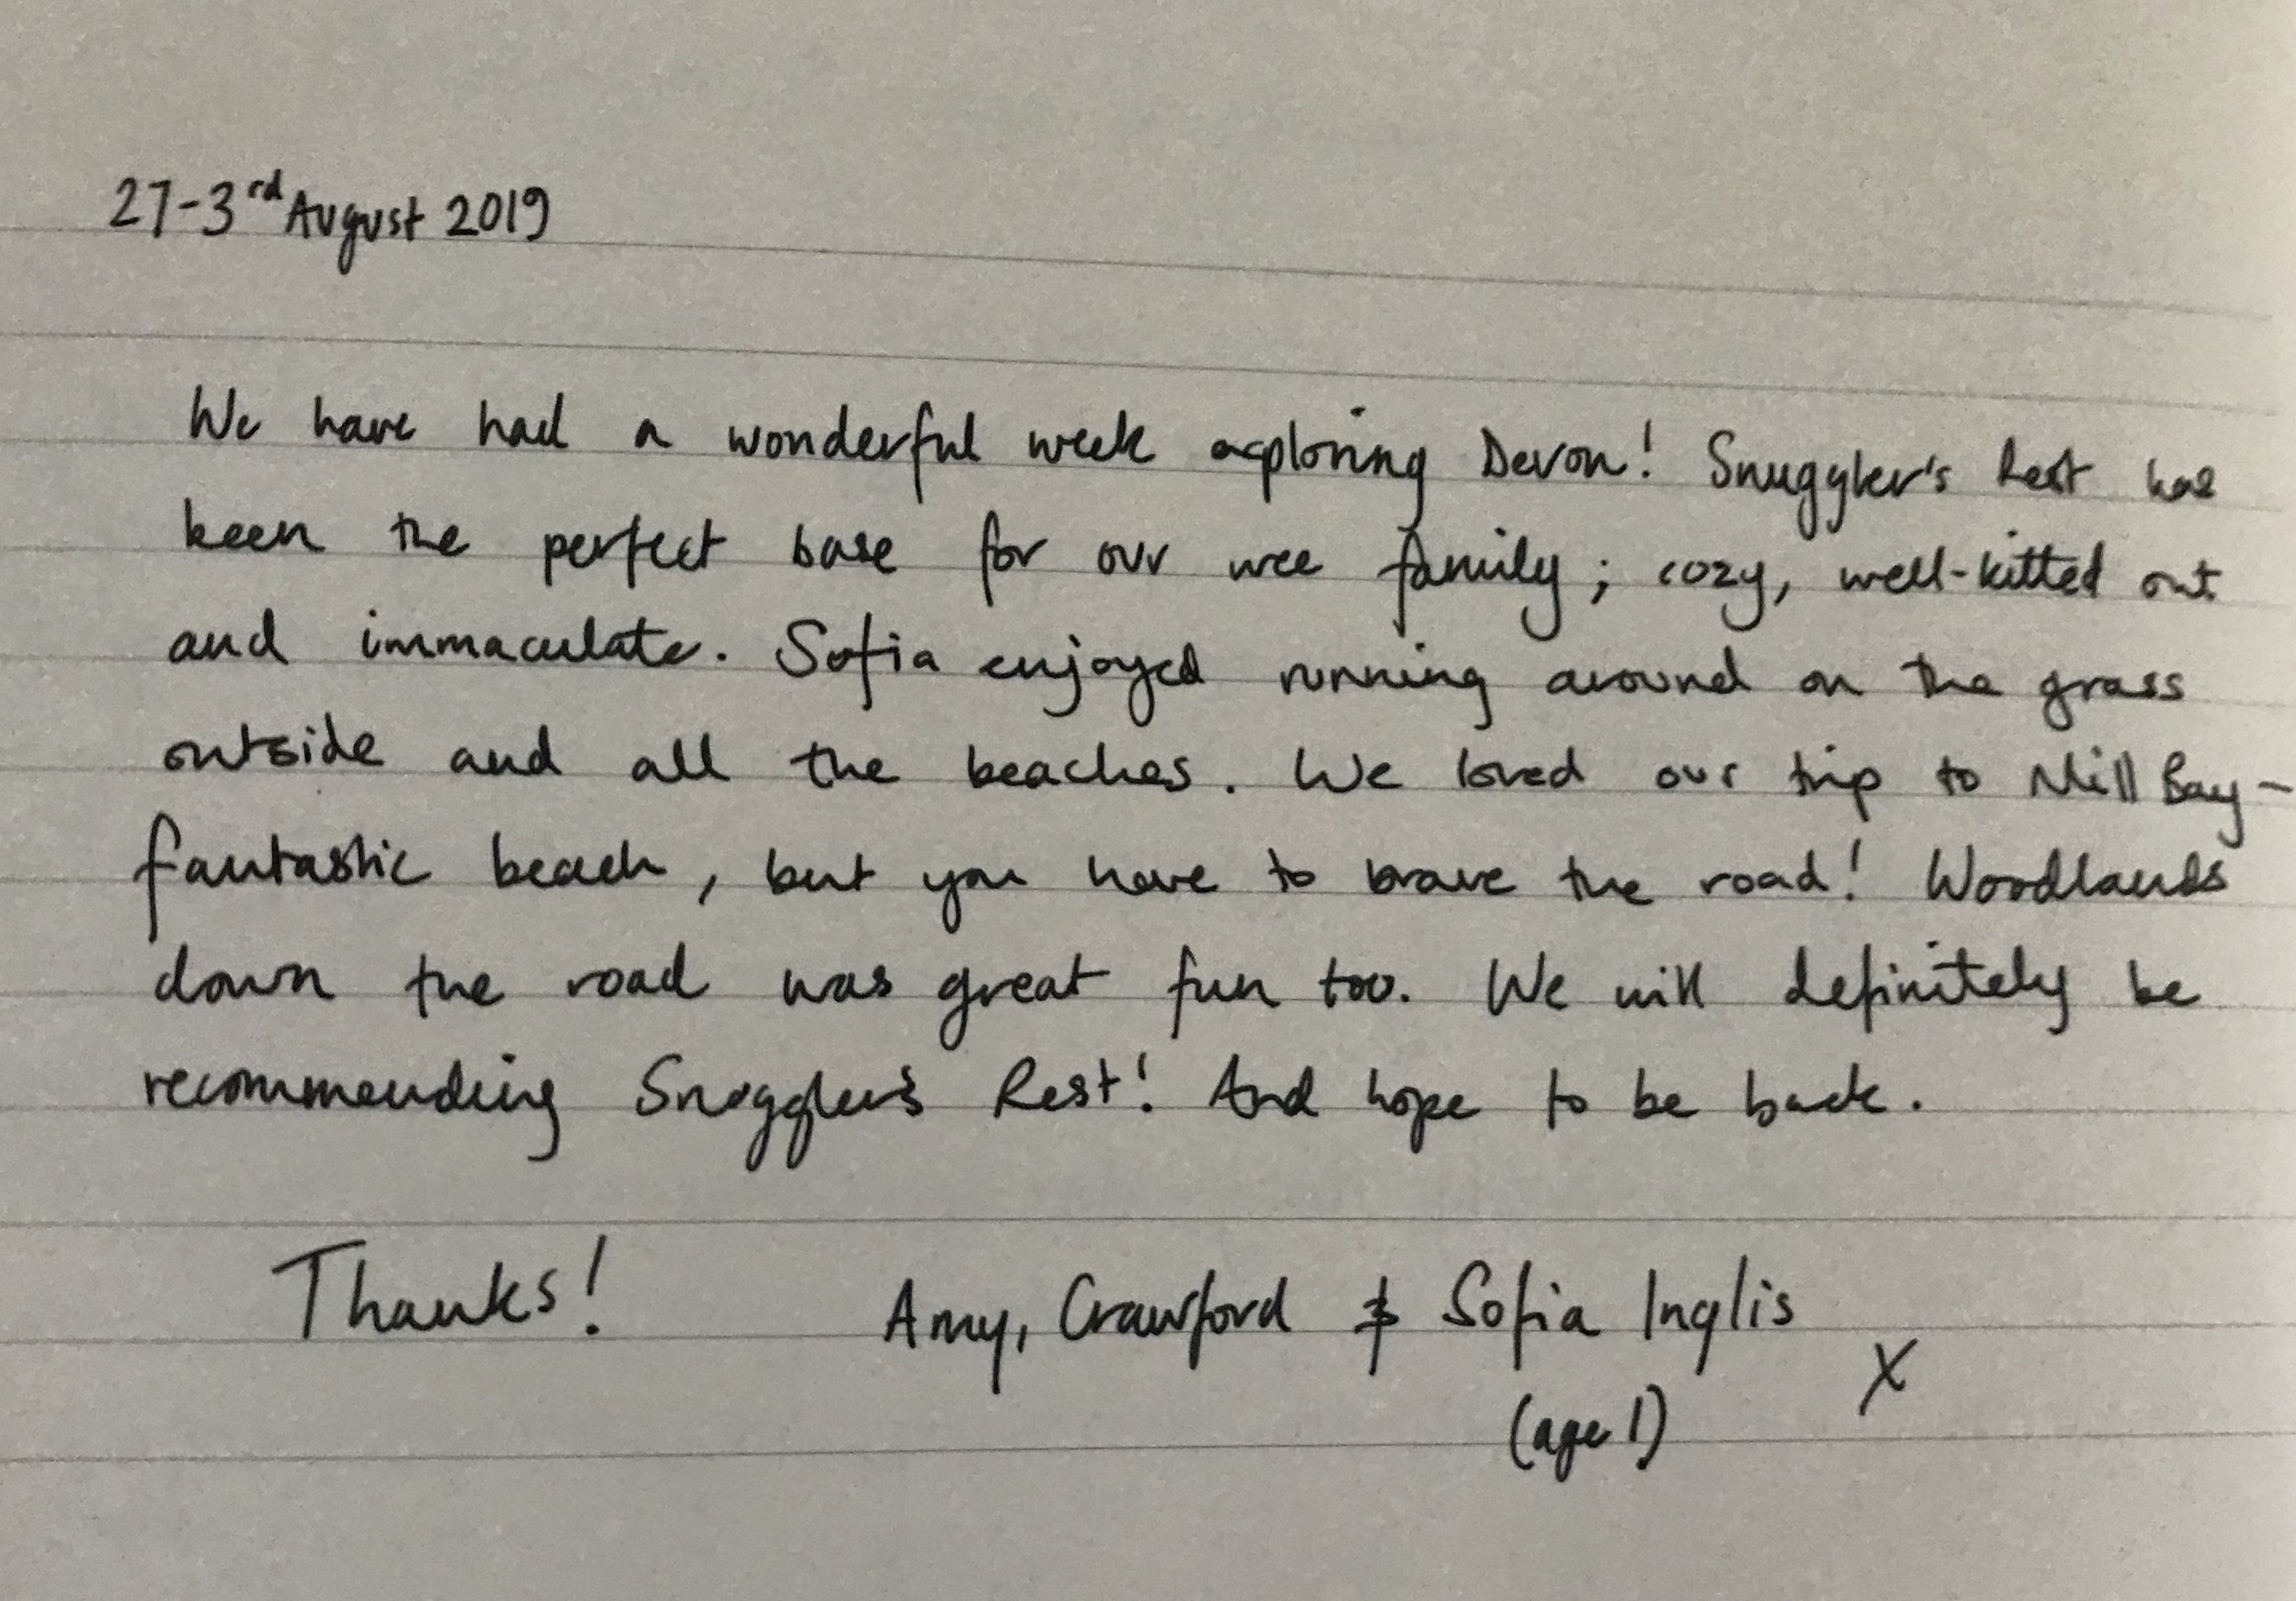 27-3rd August 2019
We have had a wonderful week exploring Devon! Snuggler's Rest has
been the perfect base for our wee family; cozy, well-kitted out
and immaculate. Sofia enjoyed running around on the grass
outside and all the beaches. We loved our trip to Mill Bay -
fantastic beach, but you have to brave the road! Woodlands
down the road was great fun too. We will definitely be
recommending Snuggler's Rest! And hope to be back.
Thanks! Amy, Crawford & Sofia Inglis
(age 1) X